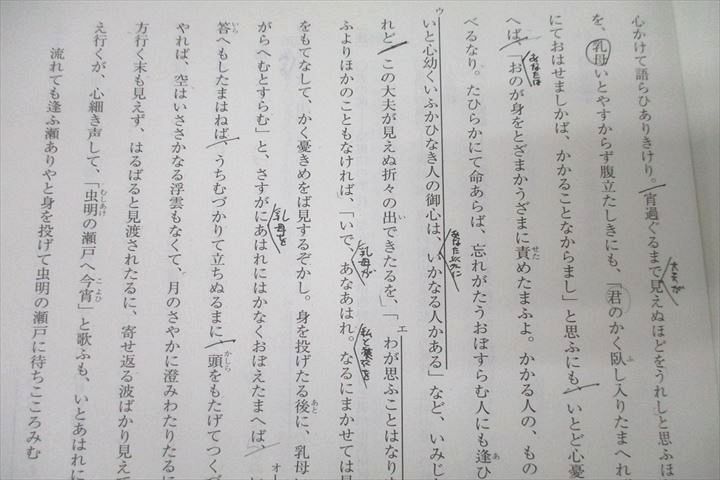 心かけて語らひありきけり。宵過ぐるまで見えぬほどをうれしと思ふほ
大夫が
を、乳母いとやすからず腹立たしきにも、「君のかく臥し入りたまへれ
ふ
にておはせましかば、かかることなからまし」と思ふにも、いとど心憂
へば、「おのが身をとざまかうざまに責めたまふよ。かかる人の、もの
あなたは
せた
べるなり。たひらかにて命あらば、忘れがたうおぼすらむ人にも逢ひ
あ
いと心幼くいふかひなき人の御心は、いかなる人かある」など、いみじ
ウ
あなた以外に
れど、この大夫が見えぬ折々の出できたるを、「わが思ふことはなり
い
エ
ふよりほかのこともなければ、「いで、あなあはれ。なるにまかせては見
乳母が
私と葉たを
をもてなして、かく憂きめをば見するぞかし。身を投げたる後に、乳母い
あと
がらへむとすらむ」と、さすがにあはれにはかなくおぼえたまへば、
乳母を
オ
答へもしたまはねば、うちむづかりて立ちぬるままに、頭をもたげてつくづ
いら
かしら
やれば、空はいささかなる浮雲もなくて、月のさやかに澄みわたりたるに
方行く末も見えず、はるばると見渡されたるに、寄せ返る波ばかり見えて
え行くが、心細き声して、「虫明の瀬戸へ今宵」と歌ふも、いとあはれに
むしあけ
こよひ
流れても逢ふ瀬ありやと身を投げて虫明の瀬戸に待ちこころみむ